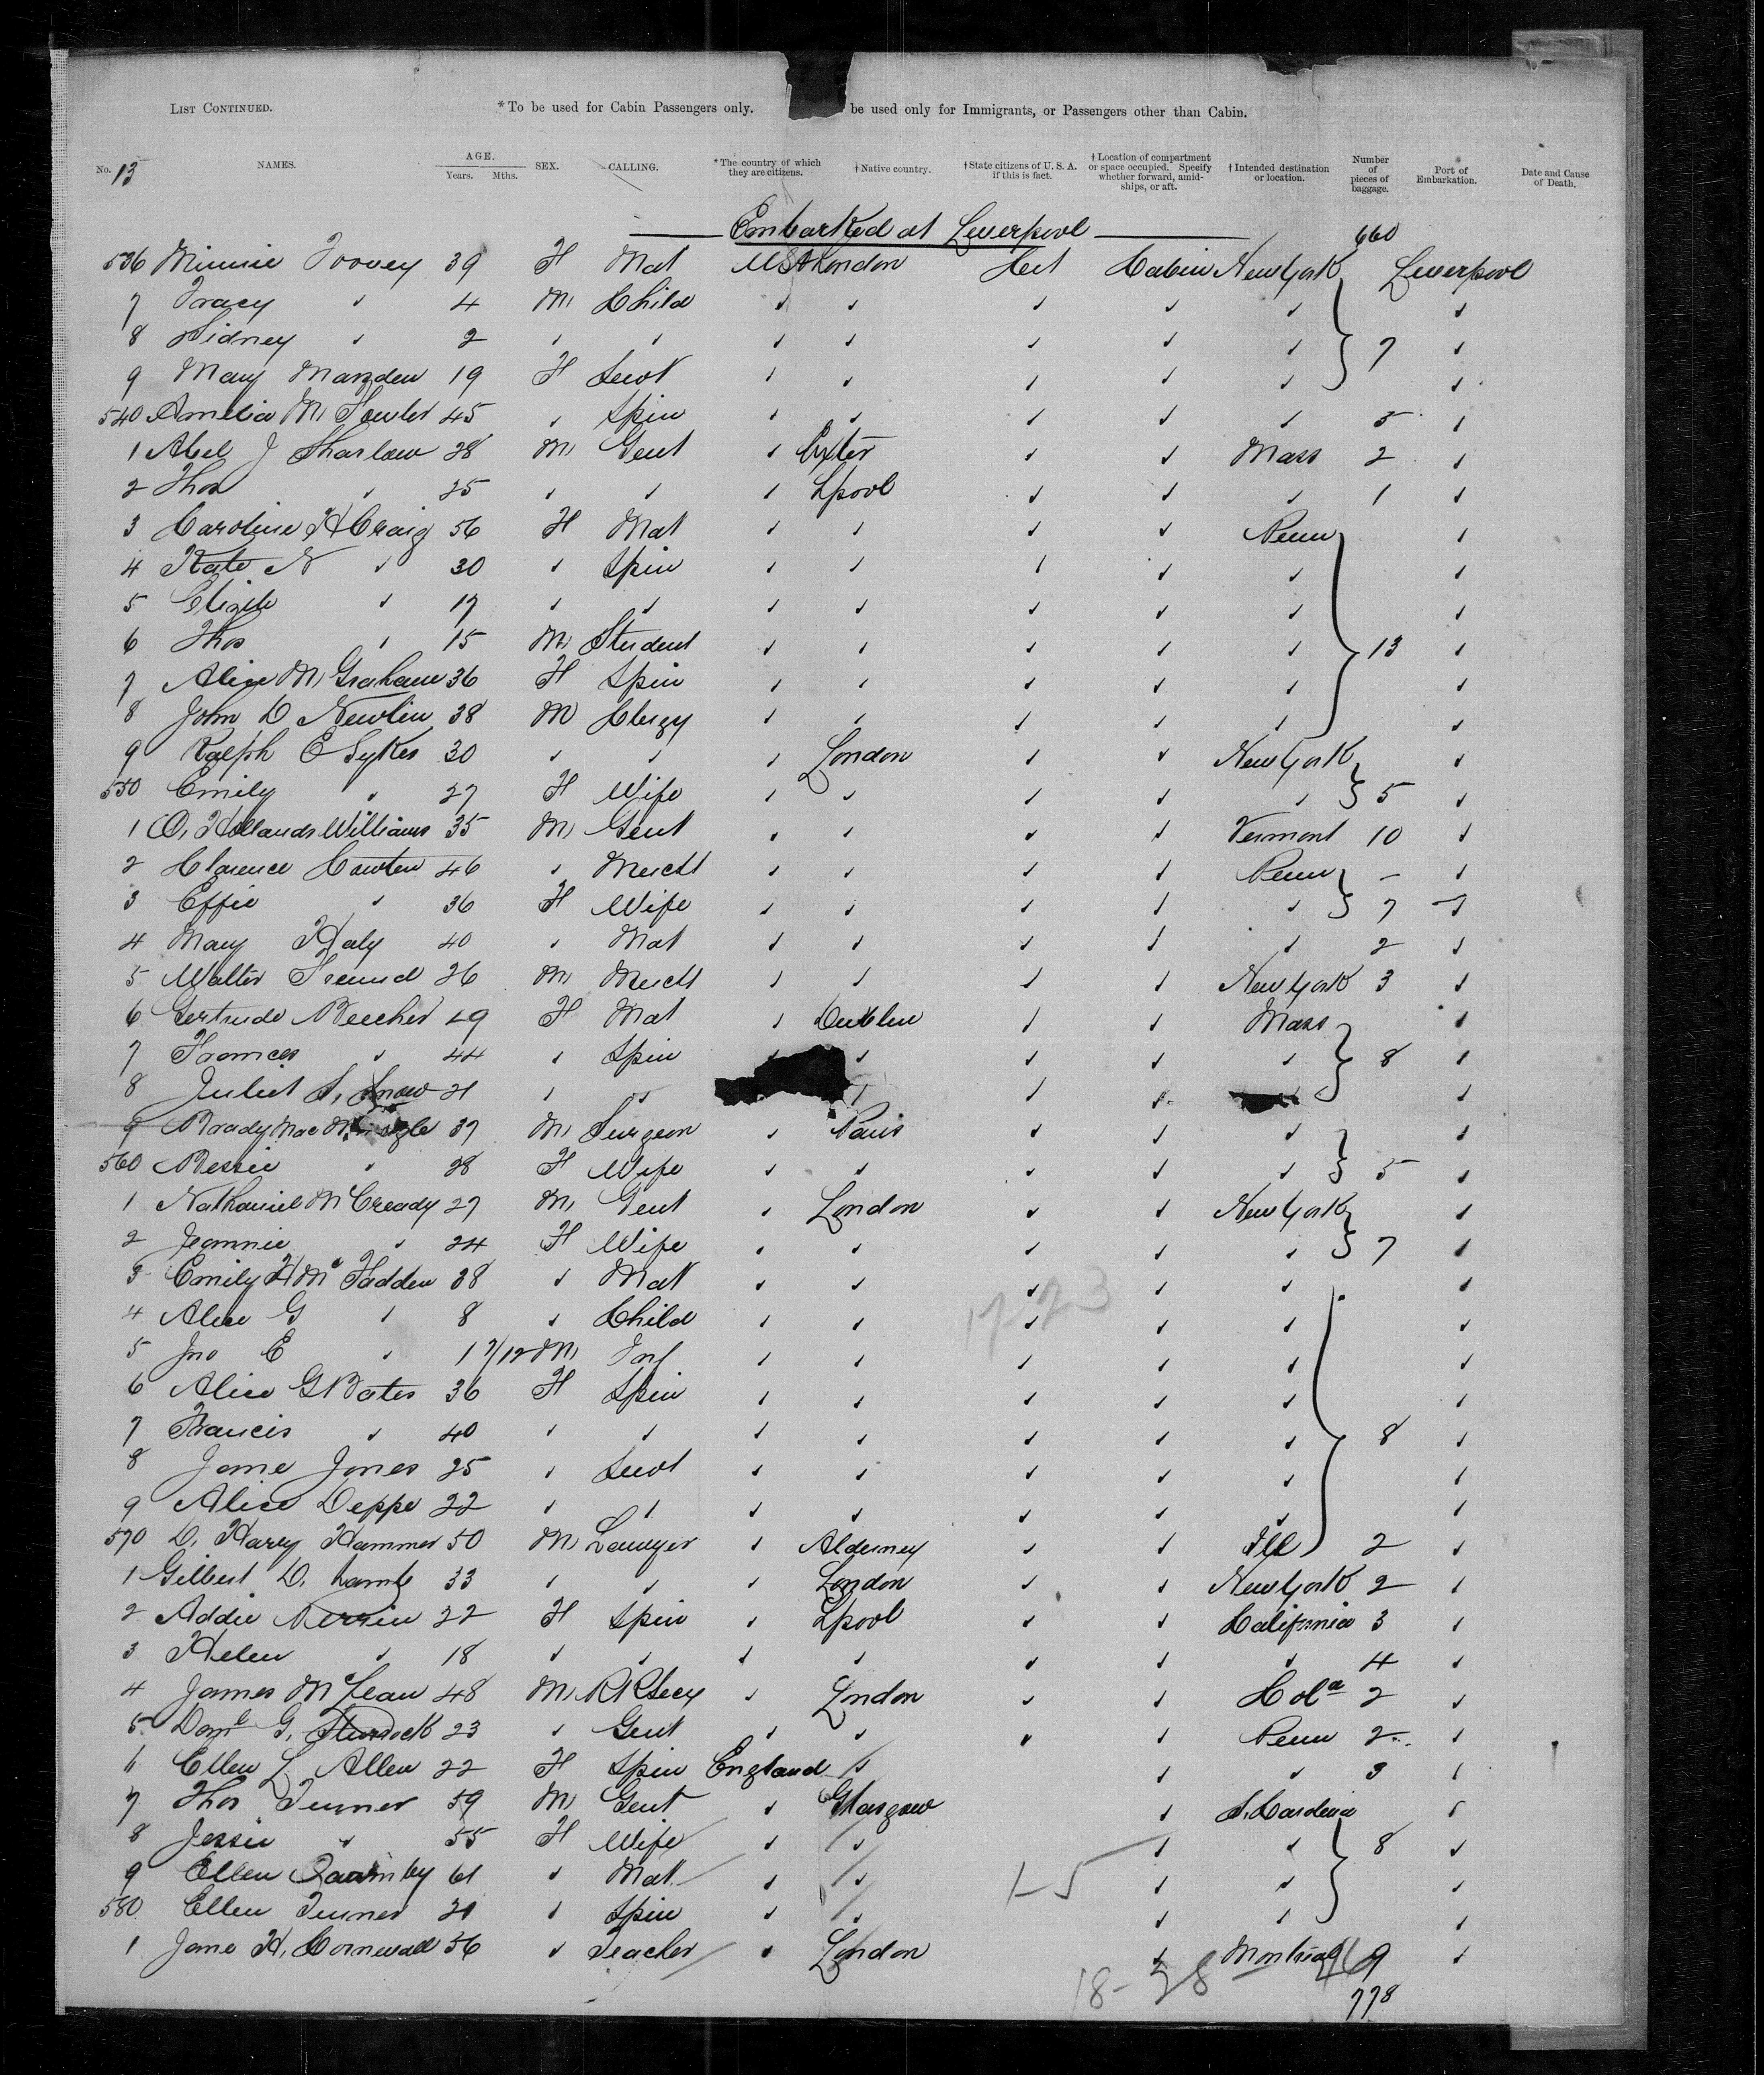 LIST CONTINUED. *To be used for Cabin Passengers only. be used only for Immigrants, or Passengers other than Cabin.
No. 13 NAMES. AGE. Years. Mths. SEX. CALLING. *The country of which they are citizens. †Native country. †State citizens of U. S. A. if this is fact. †Location of compartment or space occupied. Specify whether forward, amidships, or aft. †Intended destination or location. Number of pieces of baggage. Port of Embarkation. Date and Cause of Death.
Embarked at Liverpool 660
536 Minnie Toovey 39 F Mat USA London Cabin New York Liverpool
7 Tracy " 4 M Child " " " " " "
8 Sidney " 2 " " " " " " " 7 "
9 Mary Marsden 19 F Servt " " " " " "
540 Amelia M Fowler 45 " Spin " " " " " 5 "
1 Abel J Tharlow 28 M Gent " Exter " " Mass 2 "
2 Thos " 25 " " " Lpool " " " 1 "
3 Caroline H Craig 56 F Mat " " " " Penn "
4 Kate N " 30 " Spin " " " " " "
5 Elizth " 17 " " " " " " " "
6 Thos " 15 M Student " " " " " 13 "
7 Alice M Graham 36 F Spin " " " " " "
8 John D Newlin 38 M Clergy " " " " " "
9 Ralph E Sykes 30 " " " London " " New York "
550 Emily " 27 F Wife " " " " " 5 "
1 O. Hollands Williams 35 M Gent " " " " Vermont 10 "
2 Clarence Cawten 46 " Mercht " " " " Penn - "
3 Effie " 36 F Wife " " " " " 7 "
4 Mary Haly 40 " Mat " " " " " 2 "
5 Walter Freund 26 M Mercht " " " " New York 3 "
6 Gertrude Beecher 49 F Mat " Dublin " " Mass "
7 Frances " 44 " Spin " " " " " 8 "
8 Juliet S. Snow 21 " " " " " "
9 Brady Mac 37 M Surgeon " Paris " " " "
560 Bessie " 28 F Wife " " " " " 5 "
1 Nathaniel McCready 27 M Gent " London " " New York "
2 Jeannie " 24 F Wife " " " " " 7 "
3 Emily H McFadden 38 " Mat " " " " " "
17-23
4 Alice G " 8 " Child " " " " " "
5 Jno E " 1 7/12 M Inf " " " " " "
6 Alice G Bates 36 F Spin " " " " " "
7 Francis " 40 " " " " " " " 8 "
8 Jane Jones 25 " Servt " " " " " "
9 Alice Deppe 22 " " " " " " " "
570 D. Harry Hammer 50 M Lawyer " Alderney " " Ill 2 "
1 Gilbert D. Lamb 33 " " " London " " New York 2 "
2 Addie Perrin 22 F Spin " Lpool " " California 3 "
3 Helen " 18 " " " " " " " 4 "
4 James McLean 48 M RR Secy " London " " Cola 2 "
5 Danl G. 23 " Gent " " " " Penn 2 "
6 Ellen L Allen 22 F Spin England " " " 3 "
7 Thos Turner 59 M Gent " Glasgow " S. Carolina "
8 Jessie " 55 F Wife " " " " 8 "
9 Ellen 61 " Mat " " " " "
1-5
580 Ellen Turner 21 " Spin " " " " "
1 Jane H. Cornwall 56 " Teacher " London " Montreal 9 "
18-38 778